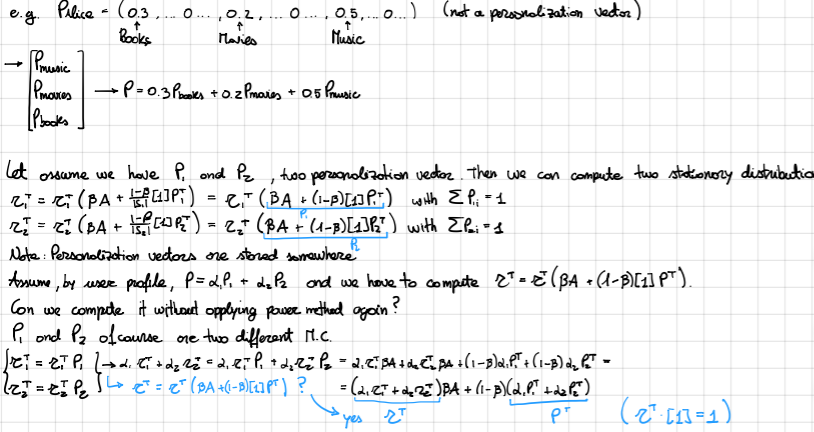 e.g. Palice = (0.3, ... 0 ..., 0.2, ... 0 ..., 0.5, ... 0...) (not a personalization vector)
↑ ↑ ↑
Books Movies Music
→ [Pmusic
Pmovies → P = 0.3 Pbooks + 0.2 Pmovies + 0.5 Pmusic
Pbooks]
Let assume we have P₁ and P₂, two personalization vector. Then we can compute two stationary distributio
r₁ᵀ = r₁ᵀ (βA + (1-β)/|S₁| [1] P₁ᵀ) = r₁ᵀ (βA + (1-β)[1]P₁ᵀ) with ∑P₁ᵢ = 1
P₁
r₂ᵀ = r₂ᵀ (βA + (1-β)/|S₂| [1] P₂ᵀ) = r₂ᵀ (βA + (1-β)[1]P₂ᵀ) with ∑P₂ᵢ = 1
P₂
Note: Personalization vectors are stored somewhere
Assume, by user profile, P = α₁P₁ + α₂P₂ and we have to compute rᵀ = rᵀ(βA + (1-β)[1] Pᵀ).
Can we compute it without applying power method again?
P₁ and P₂ of course are two different M.C.
{r₁ᵀ = r₁ᵀ P₁ } → α₁ r₁ᵀ + α₂ r₂ᵀ = α₁ r₁ᵀ P₁ + α₂ r₂ᵀ P₂ = α₁ r₁ᵀ βA + α₂ r₂ᵀ βA + (1-β) α₁ P₁ᵀ + (1-β) α₂ P₂ᵀ =
{r₂ᵀ = r₂ᵀ P₂ } ↳ rᵀ = rᵀ (βA + (1-β)[1] Pᵀ) ? = (α₁ r₁ᵀ + α₂ r₂ᵀ) βA + (1-β)(α₁ P₁ᵀ + α₂ P₂ᵀ)
→ yes rᵀ Pᵀ (rᵀ·[1] = 1)